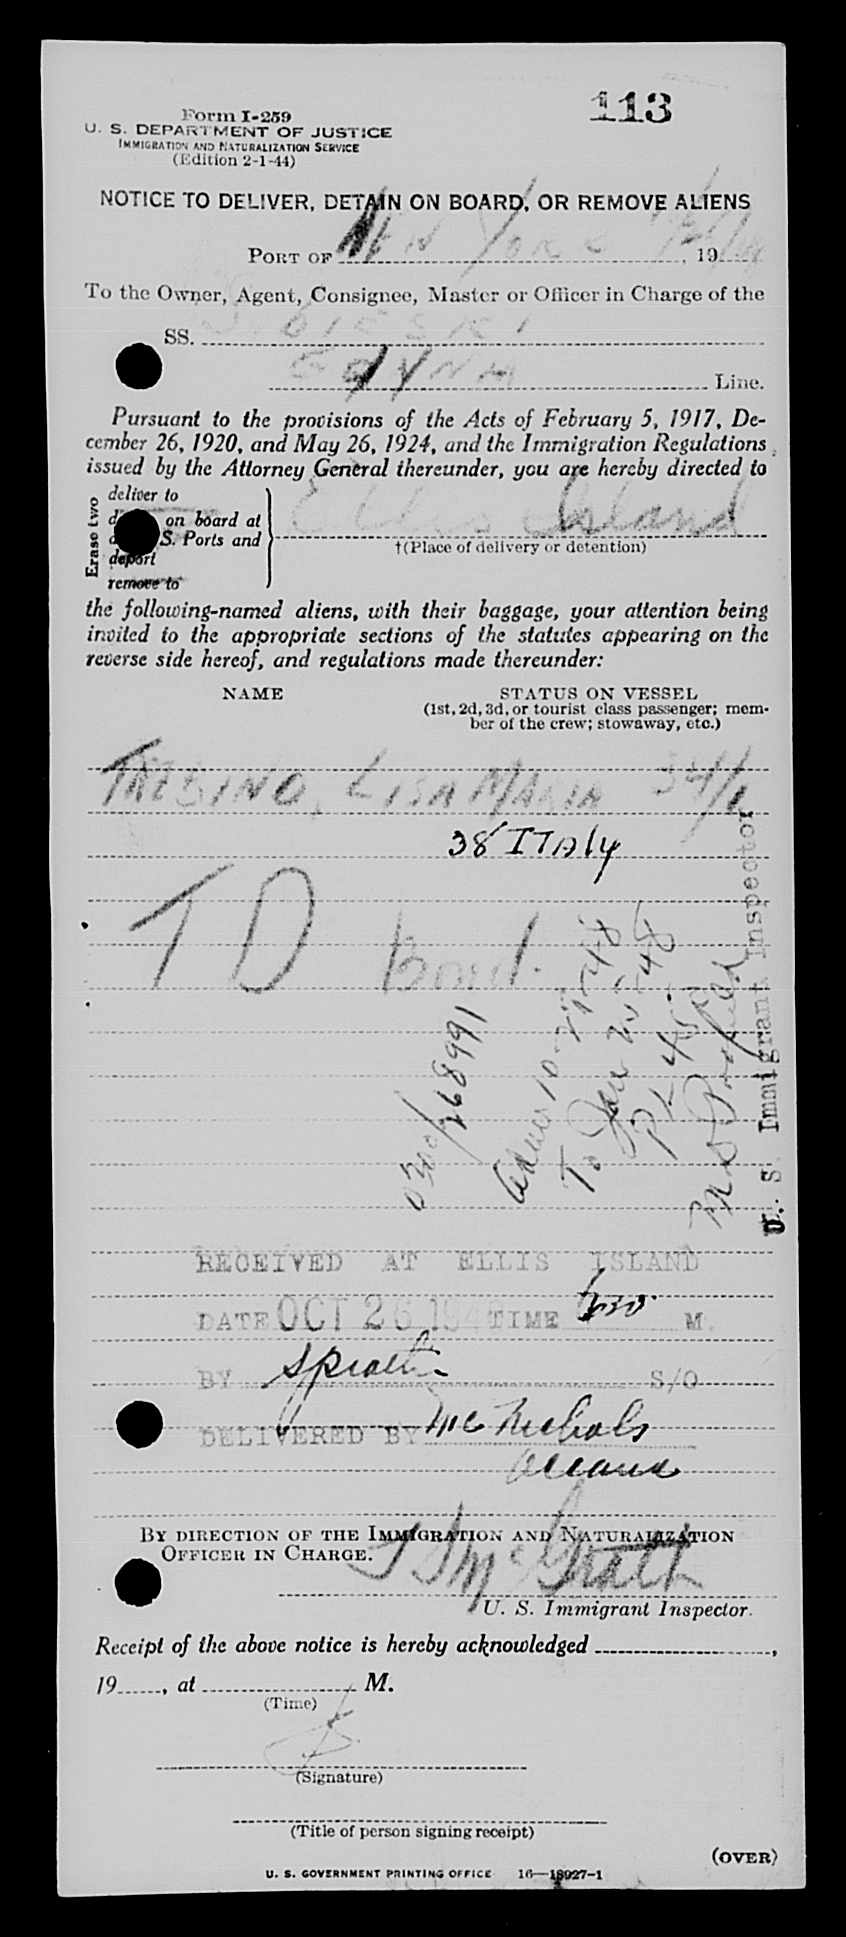 113
Form I-259
U. S. DEPARTMENT OF JUSTICE
IMMIGRATION AND NATURALIZATION SERVICE
(Edition 2-1-44)
NOTICE TO DELIVER, DETAIN ON BOARD, OR REMOVE ALIENS
PORT OF NEW YORK , 19
To the Owner, Agent, Consignee, Master or Officer in Charge of the
SS. SOBIESKI
GDYNIA Line.
Pursuant to the provisions of the Acts of February 5, 1917, De-
cember 26, 1920, and May 26, 1924, and the Immigration Regulations
issued by the Attorney General thereunder, you are hereby directed to
Erase two
deliver to
on board at
S. Ports and
deport
remove to
Ellis Island
†(Place of delivery or detention)
the following-named aliens, with their baggage, your attention being
invited to the appropriate sections of the statutes appearing on the
reverse side hereof, and regulations made thereunder:
NAME STATUS ON VESSEL
(1st, 2d, 3d, or tourist class passenger; mem-
ber of the crew; stowaway, etc.)
LISA MARIA 34/
38 ITALY
TD Bond.
0300/268991
10-27-48
To Jan 25-48
U. S. Immigrant Inspector
RECEIVED AT ELLIS ISLAND
DATE OCT 26 194 TIME M.
BY S/O
DELIVERED BY McNichols
BY DIRECTION OF THE IMMIGRATION AND NATURALIZATION
OFFICER IN CHARGE.
McGrath
U. S. Immigrant Inspector.
Receipt of the above notice is hereby acknowledged ,
19 , at M.
(Time)
(Signature)
(Title of person signing receipt)
(OVER)
U. S. GOVERNMENT PRINTING OFFICE 16—18927-1